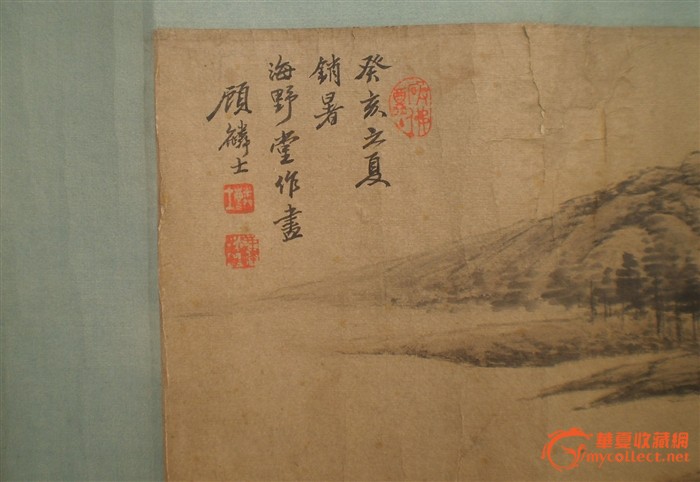 癸亥之夏
銷暑
海野堂作畫
顧麟士
華夏收藏網
mycollect.net